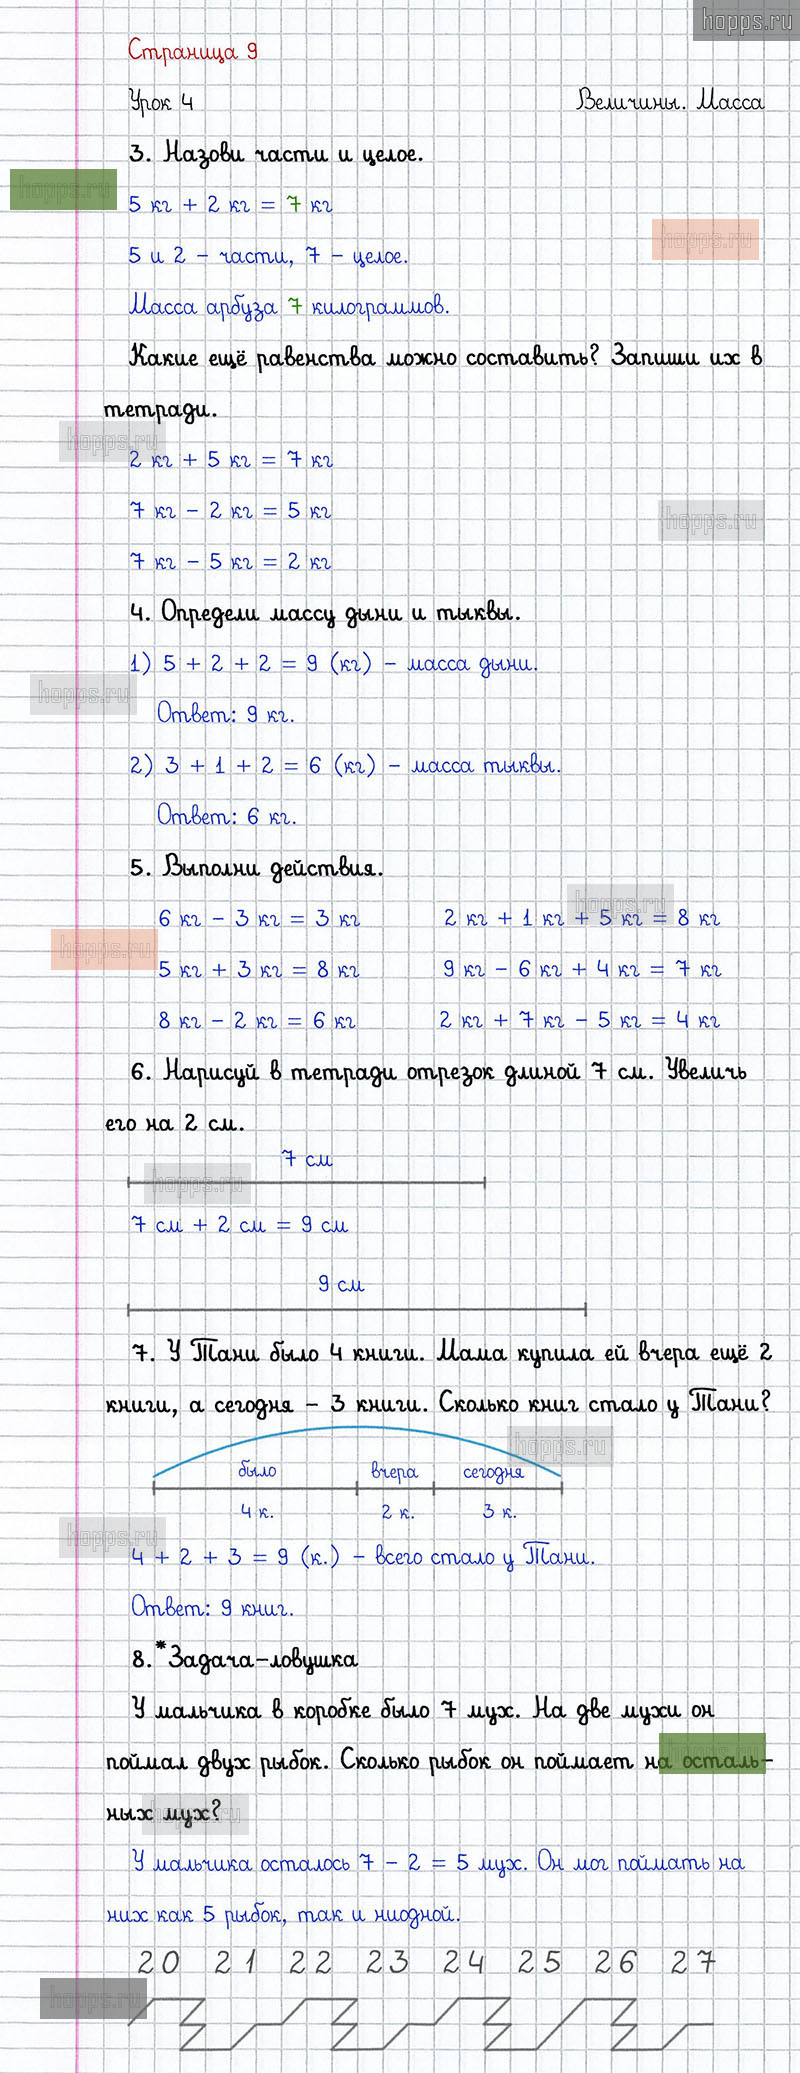 hopps.ru
Страница 9
Урок 4 Величины. Масса
3. Назови части и целое.
hopps.ru
5 кг + 2 кг = 7 кг
hopps.ru
5 и 2 – части, 7 – целое.
Масса арбуза 7 килограммов.
Какие ещё равенства можно составить? Запиши их в
тетради.
hopps.ru
2 кг + 5 кг = 7 кг
7 кг – 2 кг = 5 кг
hopps.ru
7 кг – 5 кг = 2 кг
4. Определи массу дыни и тыквы.
1) 5 + 2 + 2 = 9 (кг) – масса дыни.
hopps.ru
Ответ: 9 кг.
2) 3 + 1 + 2 = 6 (кг) – масса тыквы.
Ответ: 6 кг.
5. Выполни действия.
hopps.ru
6 кг – 3 кг = 3 кг 2 кг + 1 кг + 5 кг = 8 кг
hopps.ru
5 кг + 3 кг = 8 кг 9 кг – 6 кг + 4 кг = 7 кг
8 кг – 2 кг = 6 кг 2 кг + 7 кг – 5 кг = 4 кг
6. Нарисуй в тетради отрезок длиной 7 см. Увеличь
его на 2 см.
7 см
hopps.ru
7 см + 2 см = 9 см
9 см
7. У Тани было 4 книги. Мама купила ей вчера ещё 2
книги, а сегодня – 3 книги. Сколько книг стало у Тани?
hopps.ru
было вчера сегодня
4 к. 2 к. 3 к.
hopps.ru
4 + 2 + 3 = 9 (к.) – всего стало у Тани.
Ответ: 9 книг.
8.* Задача-ловушка
У мальчика в коробке было 7 мух. На две мухи он
поймал двух рыбок. Сколько рыбок он поймает на осталь-
ных мух?
hopps.ru
У мальчика осталось 7 – 2 = 5 мух. Он мог поймать на
них как 5 рыбок, так и ниодной.
20 21 22 23 24 25 26 27
hopps.ru